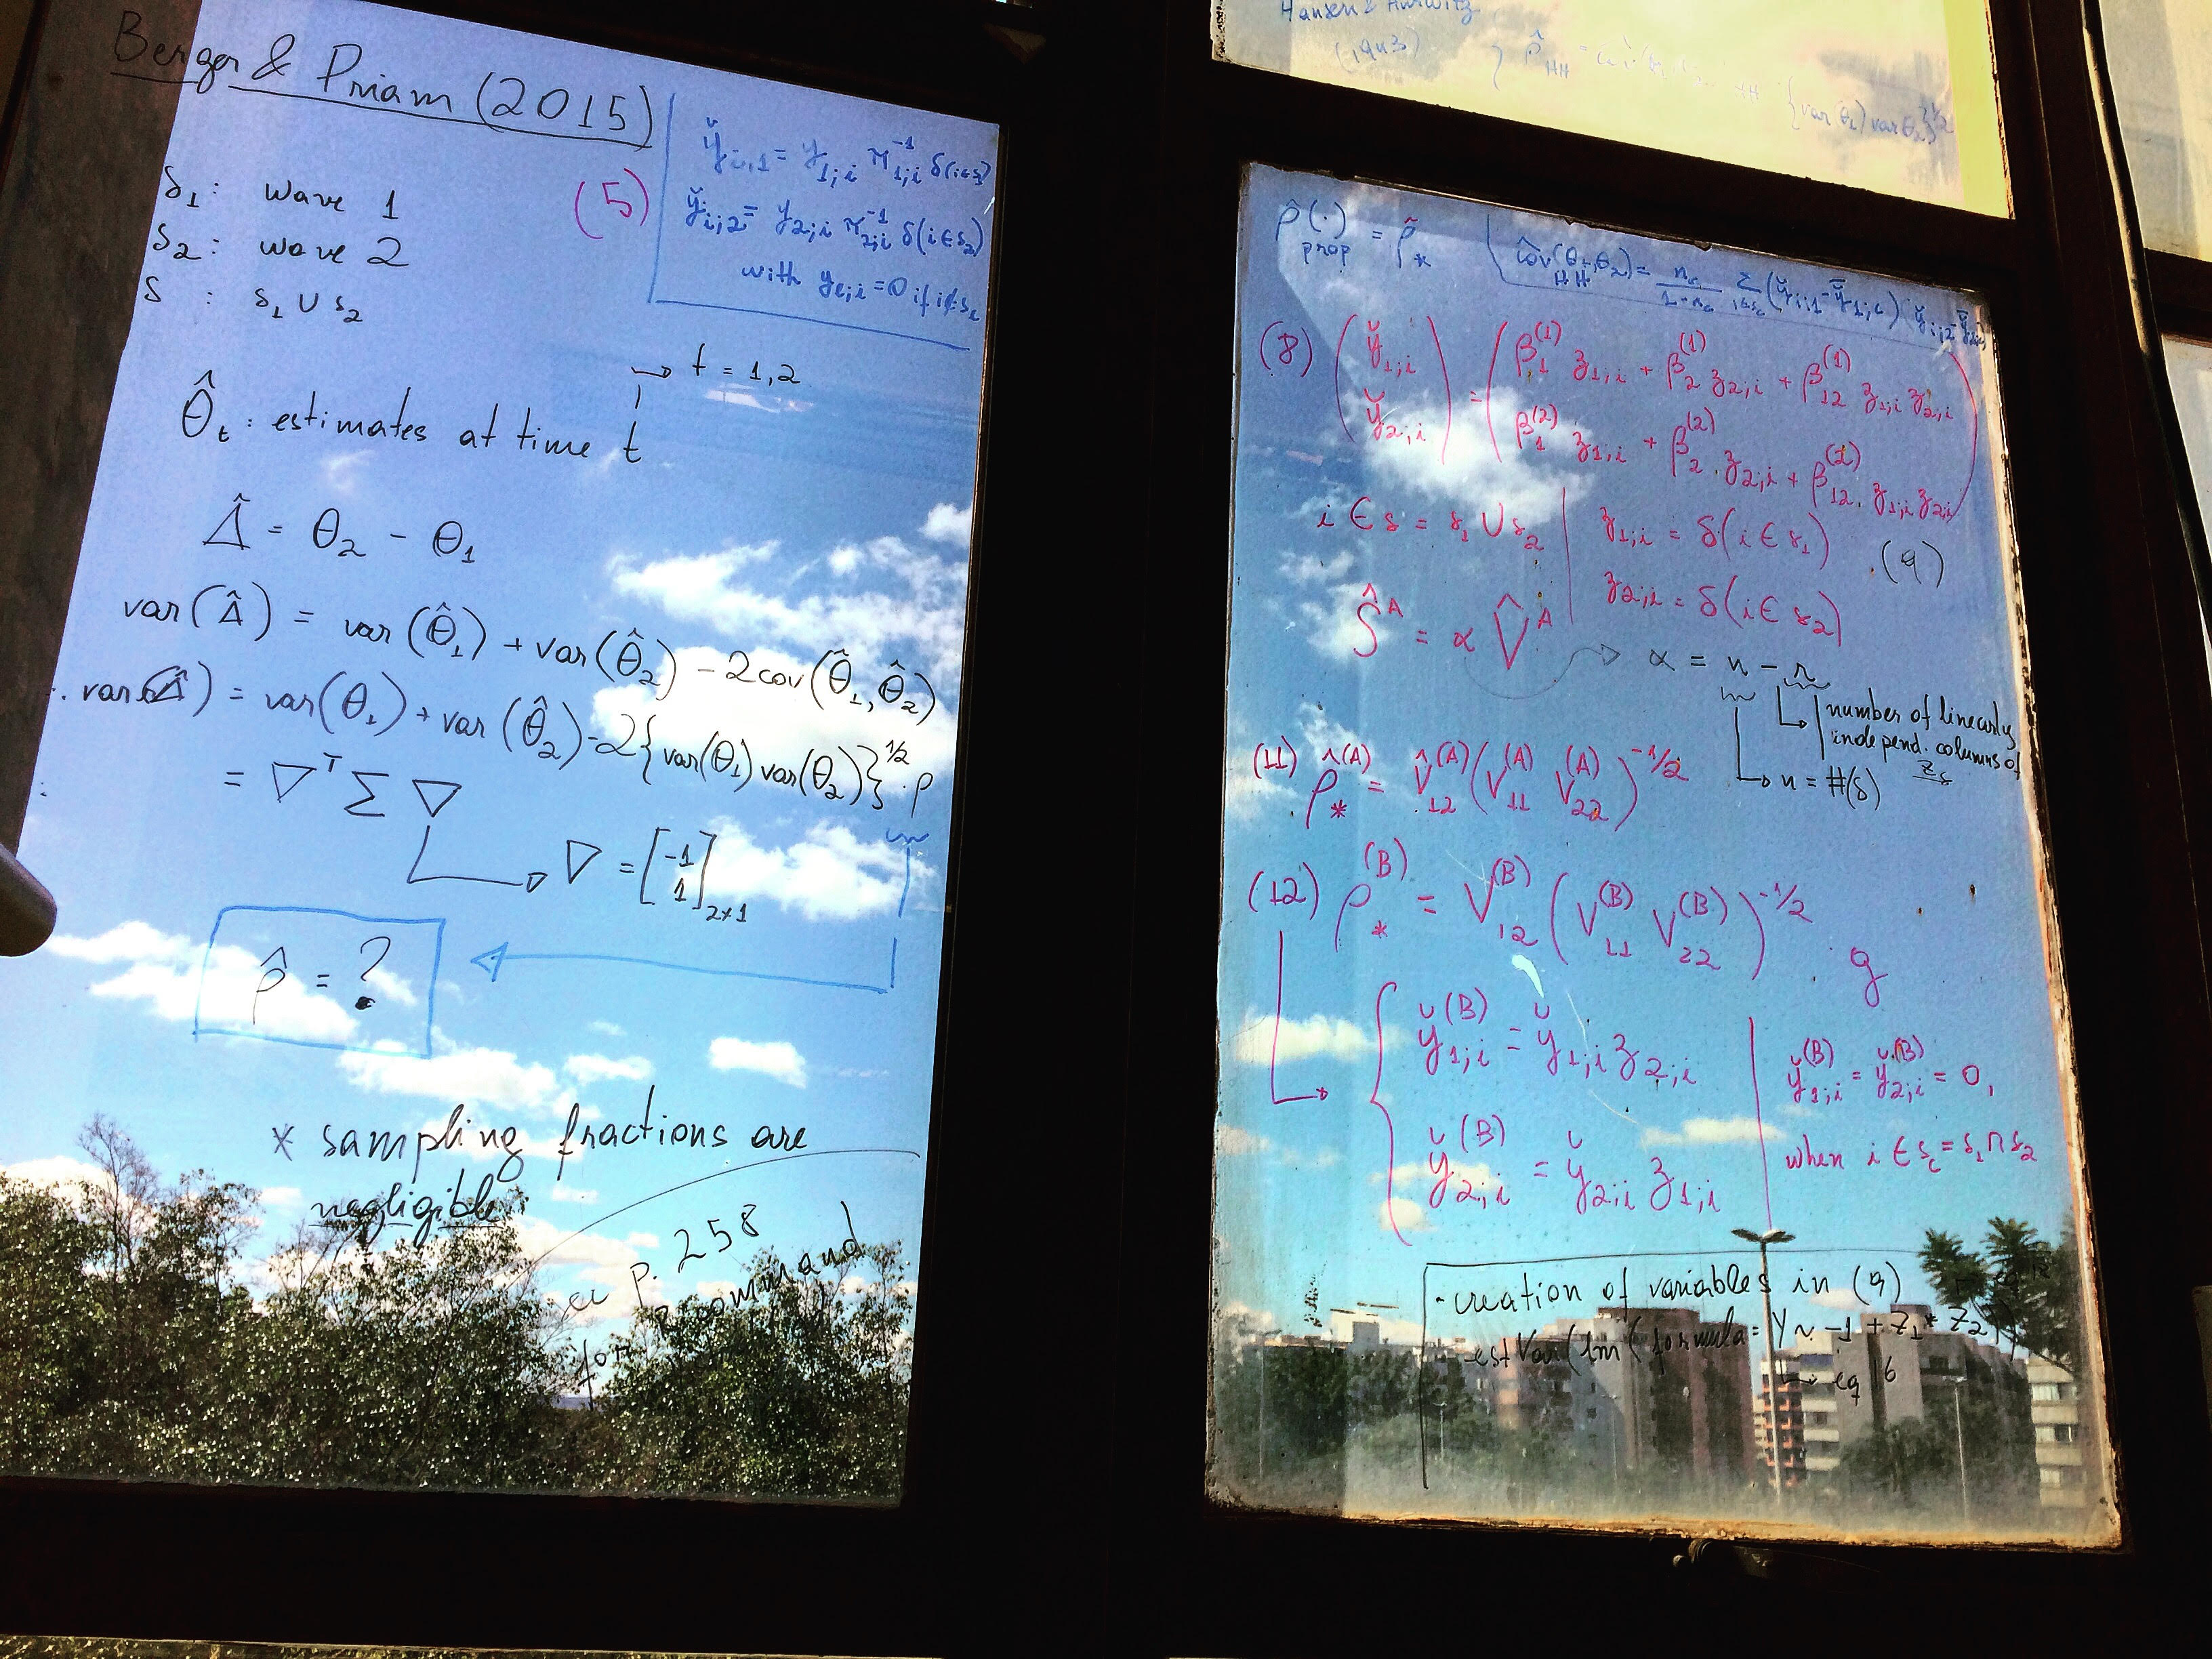 Berger & Priam (2015)
(5)
y̆i,1 = y1;i π1;i^-1 δ(i∈s1)
y̆i;2 = y2;i π2;i^-1 δ(i∈s2)
with yℓ;i = 0 if i∉sℓ
s1: wave 1
s2: wave 2
s : s1 ∪ s2
→ t = 1,2
θ̂t : estimates at time t
Δ̂ = θ2 - θ1
var(Δ̂) = var(θ̂1) + var(θ̂2) - 2cov(θ̂1, θ̂2)
∴ var(Δ̂) = var(θ1) + var(θ̂2) - 2{var(θ1) var(θ2)}^1/2 · ρ
= ∇^T Σ ∇
→ ∇ = [-1 1]2×1
ρ̂ = ?
* sampling fractions are
negligible
p. 258
for R command
Hansen & Hurwitz
(1943)
ρ̂HH =
{var θ1) var θ2}^1/2
ρ̂(·)prop = ρ̃*
côv(θ1,θ2)HH = nc/1-nc Σi∈sc (y̆i;1 - y̆1;c) (y̆i;2 - y̆2;c)
(8) (y̆1;i y̆2;i) = (β1^(1) z1;i + β2^(1) z2;i + β12^(1) z1;i z2;i
β1^(2) z1;i + β2^(2) . z2;i + β12^(2) . z1;i z2;i)
i ∈ s = s1 ∪ s2 | z1;i = δ(i ∈ s1)
z2;i = δ(i ∈ s2)
(9)
Ŝ^A = α V̂^A → α = n - r
number of linearly
independ. columns of
Zs
→ n = #(s)
(11) ρ̂*^(A) = V̂12^(A) (V11^(A) V22^(A))^-1/2
(12) ρ*^(B) = V12^(B) (V11^(B) V22^(B))^-1/2 . g
y̆1;i^(B) = y̆1;i z2;i
y̆2;i^(B) = y̆2;i z1;i
y̆1;i^(B) = y̆2;i^(B) = 0,
when i ∈ sc = s1 ∩ s2
- creation of variables in (9)
- estVar(lm(formula = Y ~ -1 + Z1 * Z2))
→ eq 16